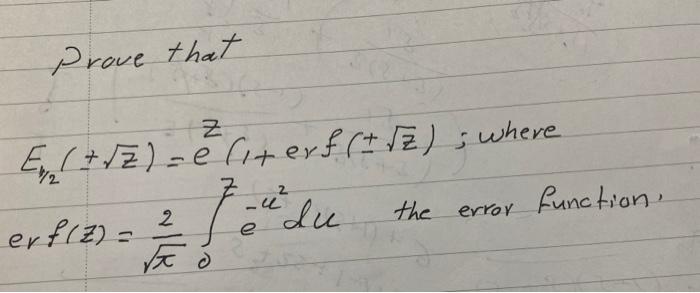 Prove that
E_{1/2}(±√z) = e^z (1 + erf(±√z) ; where
erf(z) = 2/√π ∫_0^z e^{-u²} du the error function.